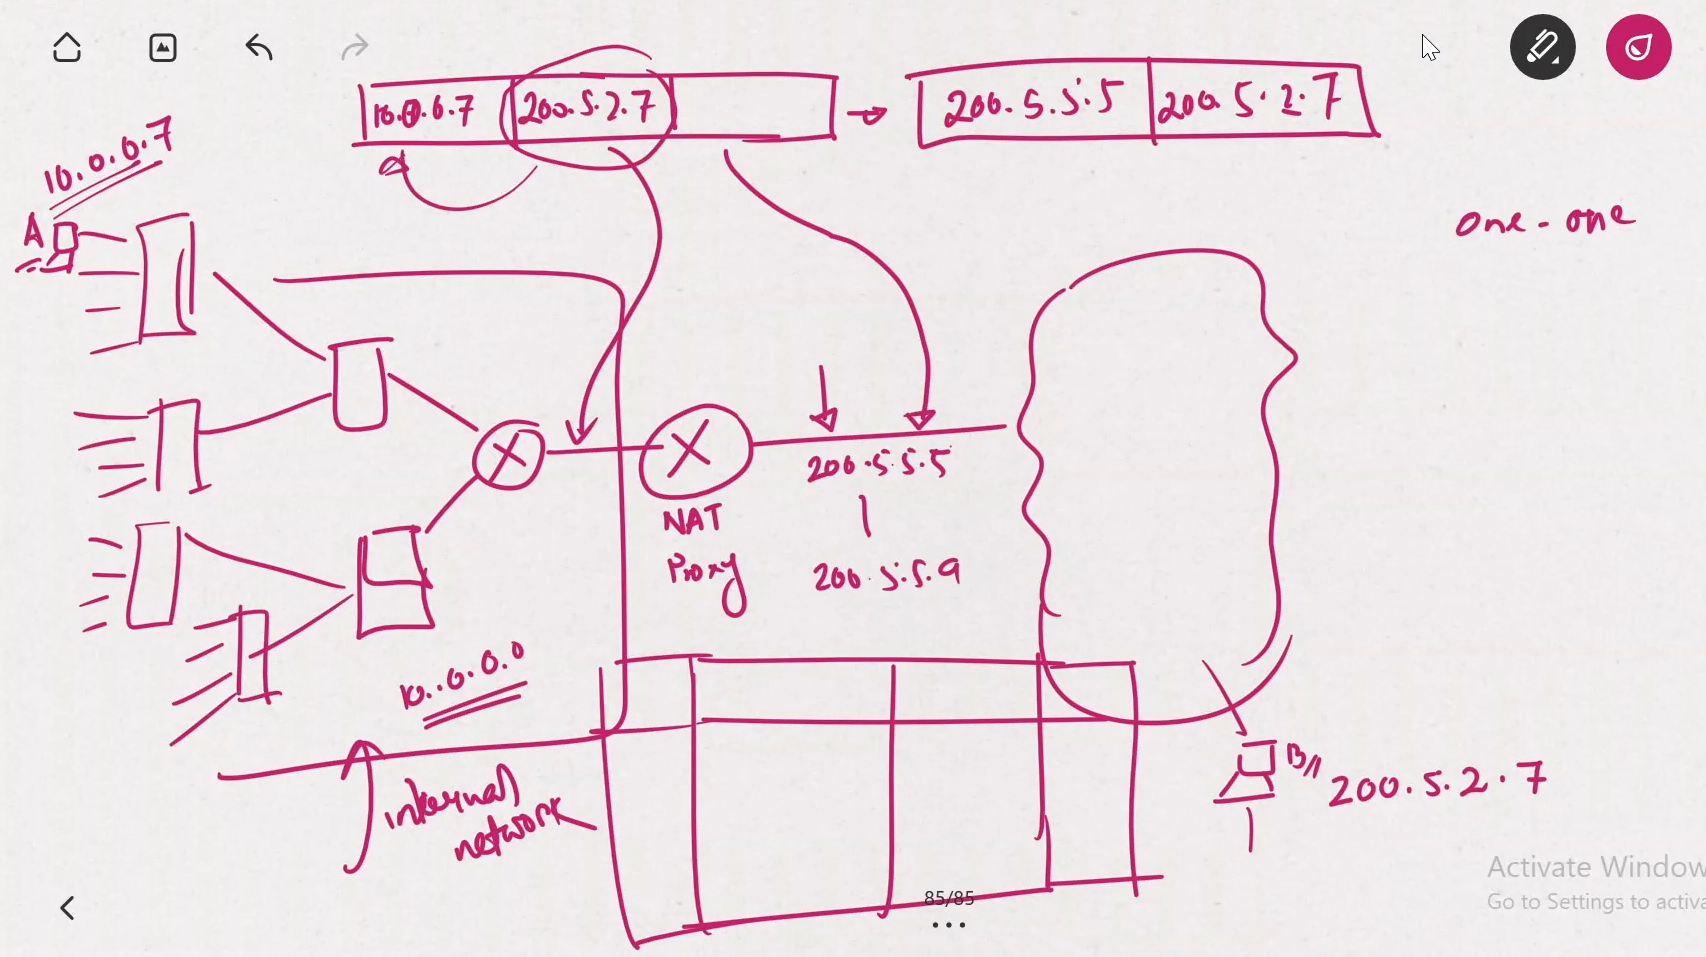 10.0.0.7 200.5.2.7
200.5.5.5 200.5.2.7
10.0.0.7
A
one - one
NAT
Proxy
200.5.5.5
200.5.5.9
10.0.0.0
internal
network
B
200.5.2.7
Activate Window
Go to Settings to activa
85/85